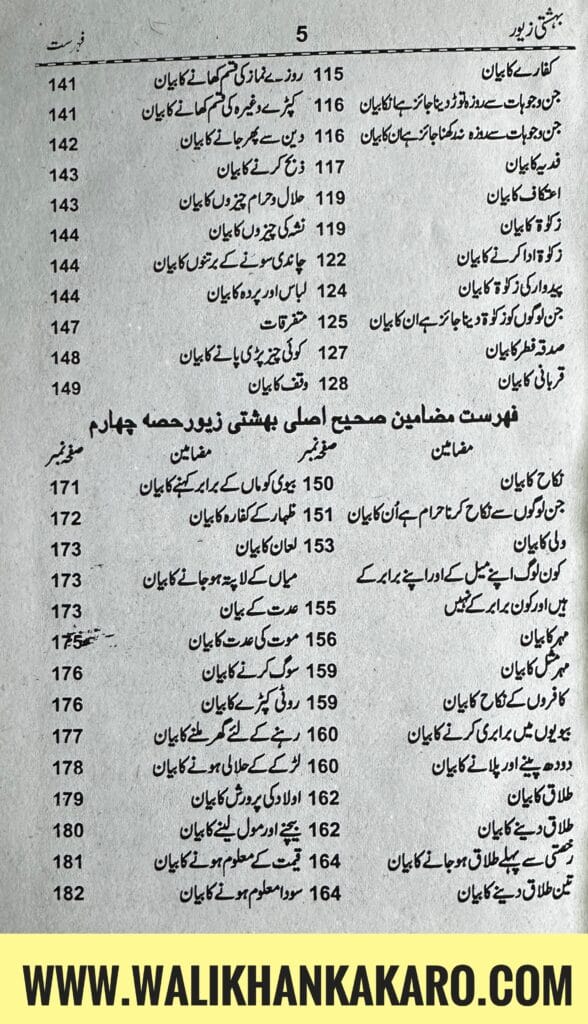 بہشتی زیور 5 فہرست
کفارے کا بیان 115 روزے نماز کی قسم کھانے کا بیان 141
جن وجوہات سے روزہ توڑ دینا جائز ہے انکا بیان 116 کپڑے وغیرہ کی قسم کھانے کا بیان 141
جن وجوہات سے روزہ نہ رکھنا جائز ہے ان کا بیان 116 دین سے پھر جانے کا بیان 142
فدیہ کا بیان 117 ذبح کرنے کا بیان 143
اعتکاف کا بیان 119 حلال و حرام چیزوں کا بیان 143
زکوٰۃ کا بیان 119 نشہ کی چیزوں کا بیان 144
زکوٰۃ ادا کرنے کا بیان 122 چاندی سونے کے برتنوں کا بیان 144
پیدوار کی زکوٰۃ کا بیان 124 لباس اور پردہ کا بیان 144
جن لوگوں کو زکوٰۃ دینا جائز ہے ان کا بیان 125 متفرقات 147
صدقہ فطر کا بیان 127 کوئی چیز پڑی پانے کا بیان 148
قربانی کا بیان 128 وقف کا بیان 149
فہرست مضامین صحیح اصلی بھشتی زیور حصہ چھارم
مضامین صفحہ نمبر مضامین صفحہ نمبر
نکاح کا بیان 150 بیوی کو ماں کے برابر کہنے کا بیان 171
جن لوگوں سے نکاح کرنا حرام ہے اُن کا بیان 151 ظہار کے کفارہ کا بیان 172
ولی کا بیان 153 لعان کا بیان 173
کون لوگ اپنے میل کے اور اپنے برابر کے میاں کے لاپتہ ہو جانے کا بیان 173
ہیں اور کون برابر کے نہیں 155 عدت کے بیان 173
مہر کا بیان 156 موت کی عدت کا بیان 175
مہر مثل کا بیان 159 سوگ کرنے کا بیان 176
کافروں کے نکاح کا بیان 159 روٹی کپڑے کا بیان 176
بیویوں میں برابری کرنے کا بیان 160 رہنے کے لئے گھر ملنے کا بیان 177
دودھ پینے اور پلانے کا بیان 160 لڑکے کے حلالی ہونے کا بیان 178
طلاق کا بیان 162 اولاد کی پرورش کا بیان 179
طلاق دینے کا بیان 162 بیچنے اور مول لینے کا بیان 180
رخصتی سے پہلے طلاق ہو جانے کا بیان 164 قیمت کے معلوم ہونے کا بیان 181
تین طلاق دینے کا بیان 164 سودا معلوم ہونے کا بیان 182
WWW.WALIKHANKAKARO.COM